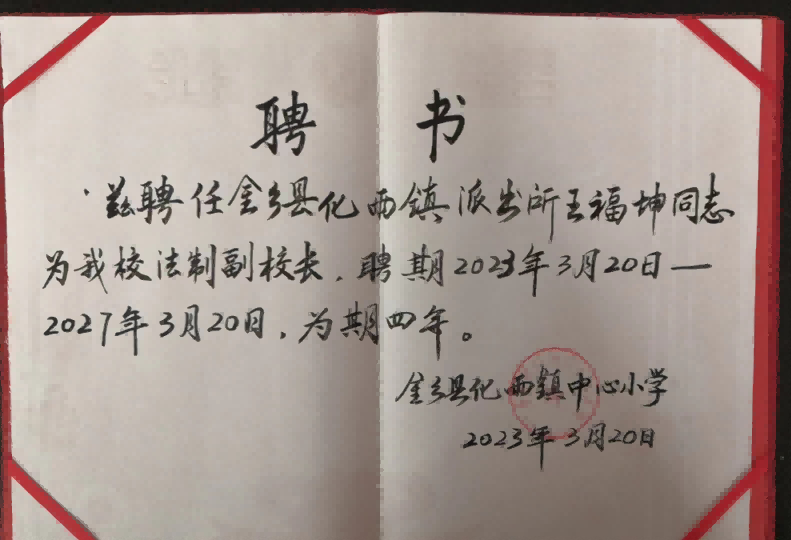 聘 书
兹聘任金乡县化雨镇派出所王福坤同志
为我校法制副校长，聘期2023年3月20日—
2027年3月20日，为期四年。
金乡县化雨镇中心小学
2023年3月20日